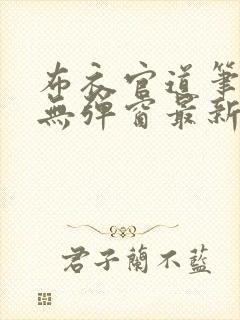 布衣官道筆
無彈窗最新
君子蘭不藍